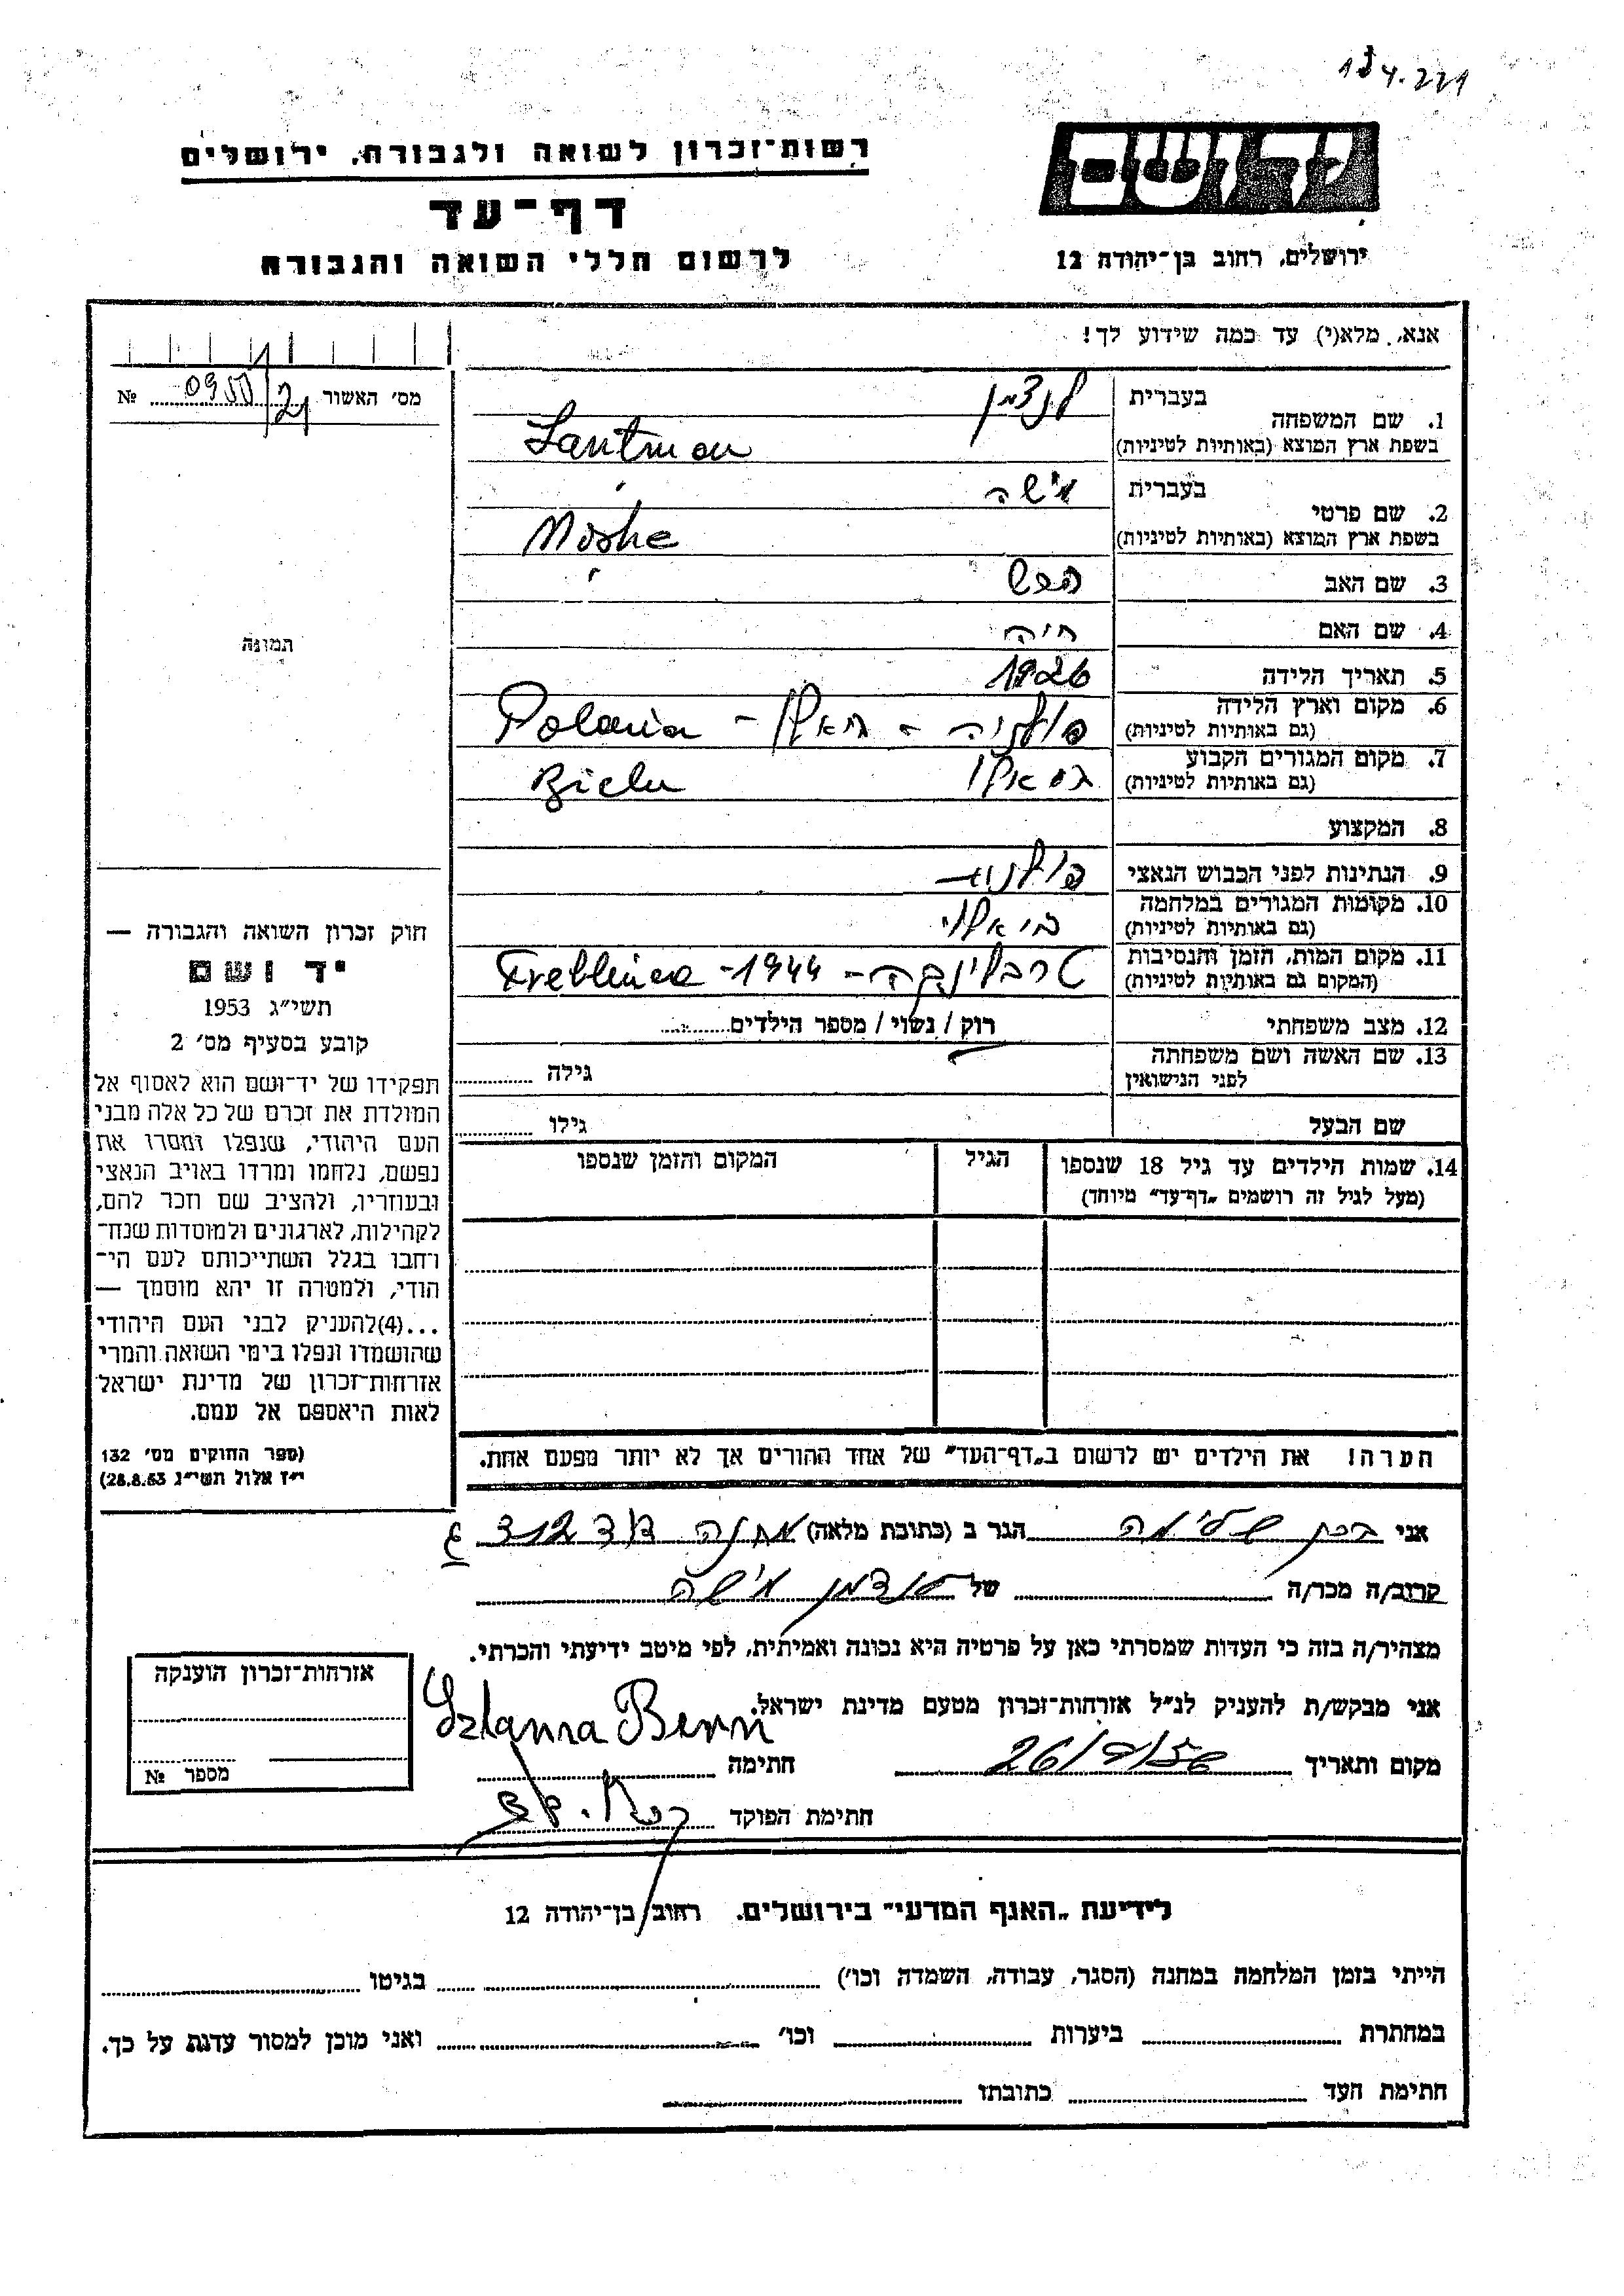 174.221
רשות־זכרון לשואה ולגבורה, ירושלים
דף־עד
לרשום חללי השואה והגבורה
יד ושם
ירושלים, רחוב בן־יהודה 12
אנא, מלא(י) עד כמה שידוע לך!
מס׳ האשור № 0950/21
1. שם המשפחה
בעברית לנצמן
בשפת ארץ המוצא (באותיות לטיניות) Lantman
2. שם פרטי
בעברית מישה
בשפת ארץ המוצא (באותיות לטיניות) Moshe
3. שם האב הרש
4. שם האם חיה
5. תאריך הלידה 1926
6. מקום וארץ הלידה
(גם באותיות לטיניות) פולניה - Polania
7. מקום המגורים הקבוע
(גם באותיות לטיניות) Biela
8. המקצוע
9. הנתינות לפני הכבוש הנאצי פולנית
10. מקומות המגורים במלחמה
(גם באותיות לטיניות)
11. מקום המות, הזמן והנסיבות
(המקום גם באותיות לטיניות) טרבלינקה - 1944 - Treblinca
12. מצב משפחתי רוק / נשוי / מספר הילדים
13. שם האשה ושם משפחתה
לפני הנישואין גילה
שם הבעל גילו
14. שמות הילדים עד גיל 18 שנספו
(מעל לגיל זה רושמים „דף־עד״ מיוחד)
הגיל
המקום והזמן שנספו
הערה! את הילדים יש לרשום ב„דף־העד״ של אחד ההורים אך לא יותר מפעם אחת.
תמונה
חוק זכרון השואה והגבורה —
יד ושם
תשי״ג 1953
קובע בסעיף מס׳ 2
תפקידו של יד־ושם הוא לאסוף אל
המולדת את זכרם של כל אלה מבני
העם היהודי, שנפלו ומסרו את
נפשם, נלחמו ומרדו באויב הנאצי
ובעוזריו, ולהציב שם וזכר להם,
לקהילות, לארגונים ולמוסדות שנח־
רחבו בגלל השתייכותם לעם הי־
הודי, ולמטרה זו יהא מוסמך —
...(4)להעניק לבני העם היהודי
שהושמדו ונפלו בימי השואה והמרי
אזרחות־זכרון של מדינת ישראל
לאות היאספם אל עמם.
(ספר החוקים מס׳ 132
י״ז אלול תשי״ג 28.8.53)
אני הגר ב (כתובת מלאה) מחנה דוד
קרוב/ה מכר/ה של לנדמן מישה
מצהיר/ה בזה כי העדות שמסרתי כאן על פרטיה היא נכונה ואמיתית, לפי מיטב ידיעתי והכרתי.
אני מבקש/ת להעניק לנ״ל אזרחות־זכרון מטעם מדינת ישראל.
מקום ותאריך חתימה Szlama Benn
חתימת הפוקד
אזרחות־זכרון הוענקה
מספר №
לידיעת „האגף המדעי״ בירושלים. רחוב בן־יהודה 12
הייתי בזמן המלחמה במחנה (הסגר, עבודה, השמדה וכו׳) בגיטו
במחתרת ביערות וכו׳ ואני מוכן למסור עדות על כך.
חתימת העד כתובתו